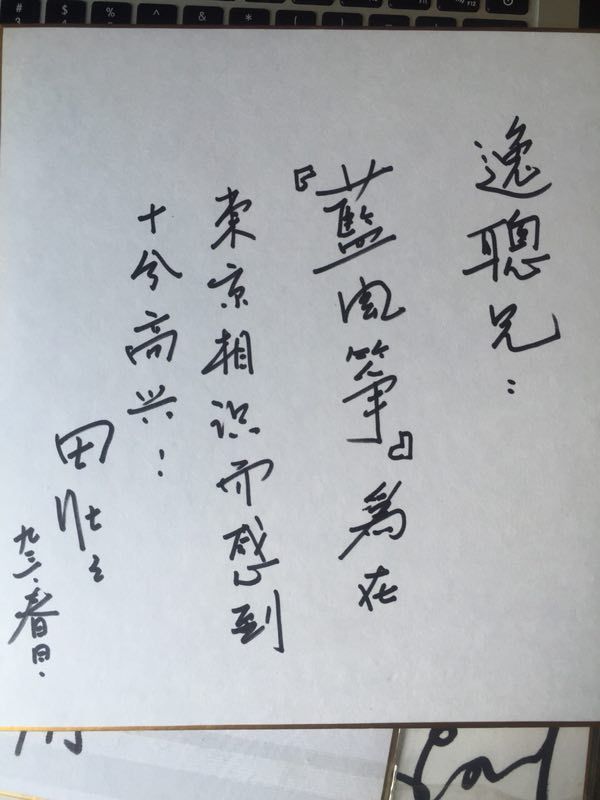 逸聰兄：
『藍風筝』為在
東京相识而感到
十分高兴！
田壮壮
九三．春日．